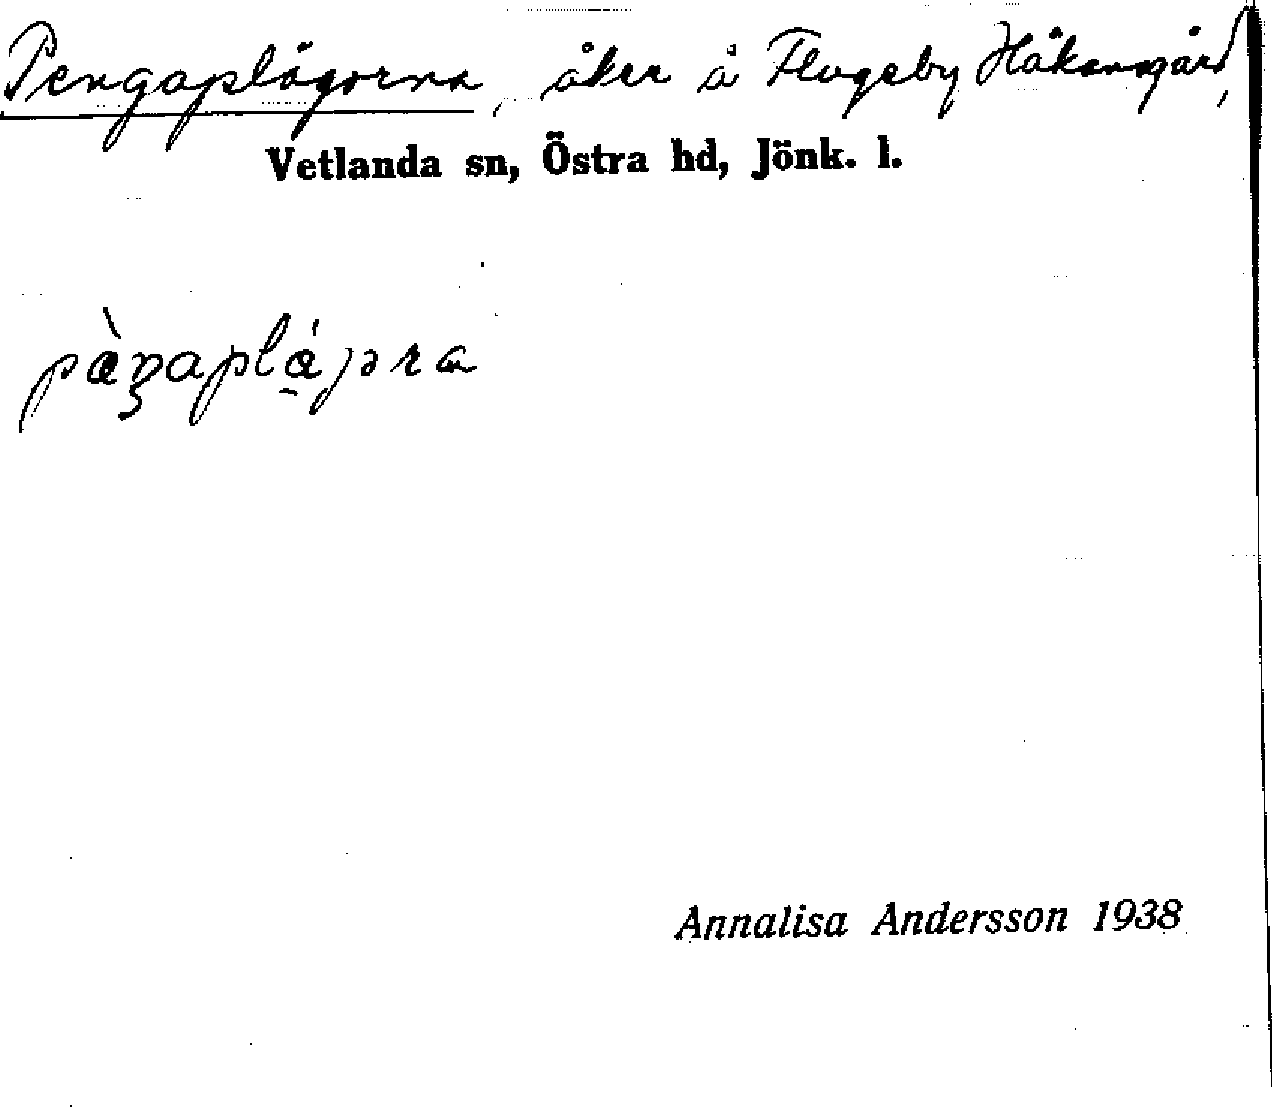 Pengaplågorna, åker å Flugeby Håkansgård,
Vetlanda sn, Östra hd, Jönk. l.
pæ̀ŋaplá̱jəra
Annalisa Andersson 1938